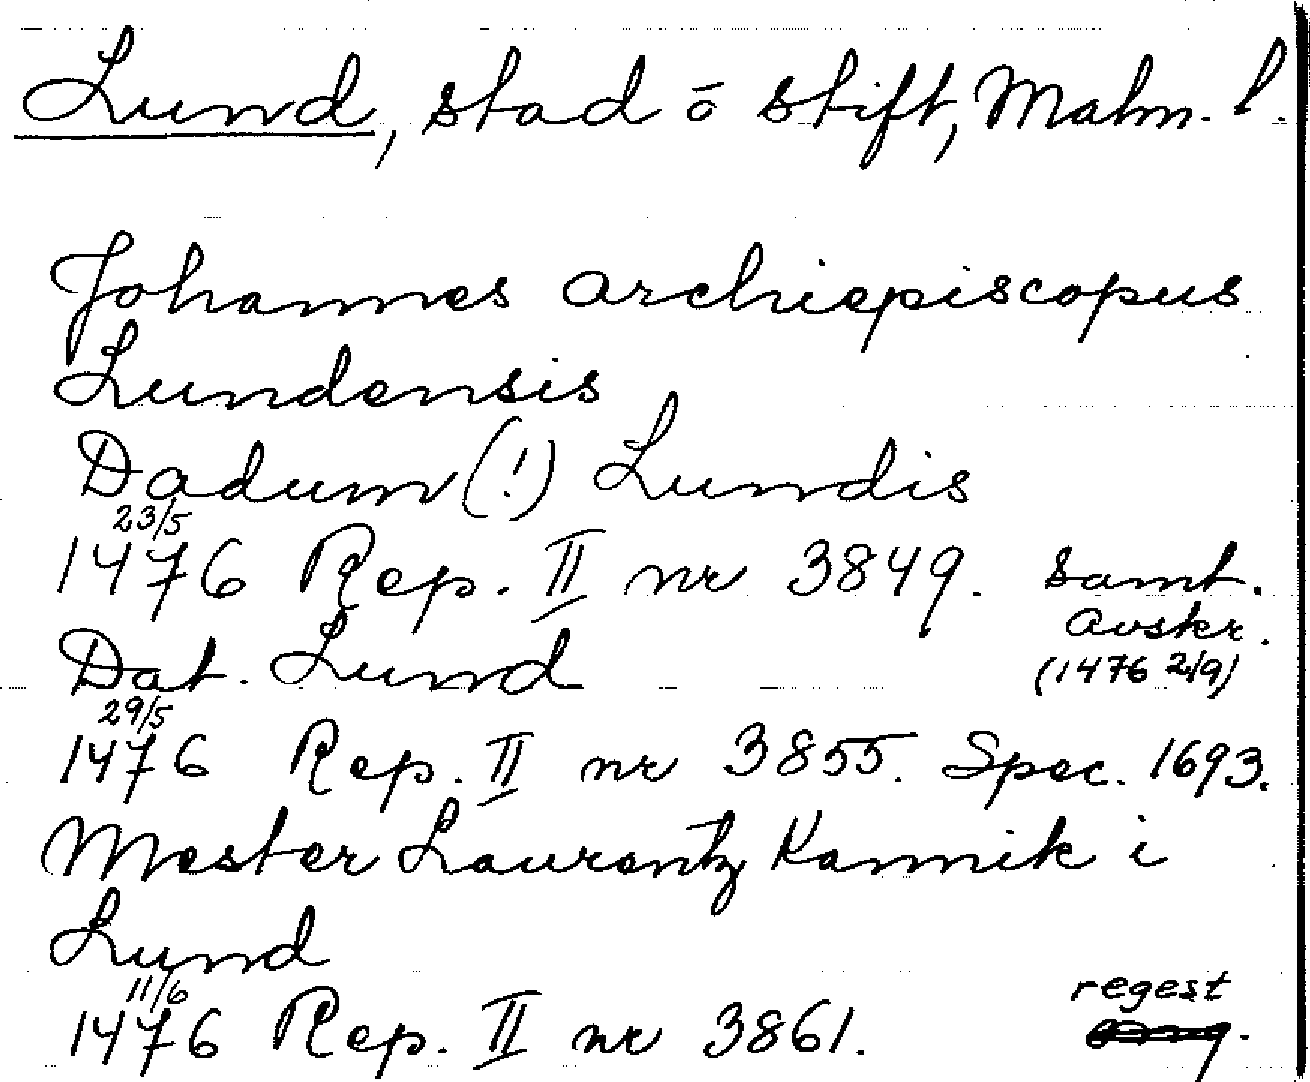 Lund, stad o stift, Malm. l.
Johannes archiepiscopus
Lundensis
Dadum (!) Lundis
23/5
1476 Rep. II nr 3849. samt.
avskr.
(1476 2/9)
Dat. Lund
29/5
1476 Rep. II nr 3855. Spec. 1693.
Mester Laurentz Kannik i
Lund
11/6
1476 Rep. II nr 3861.
regest